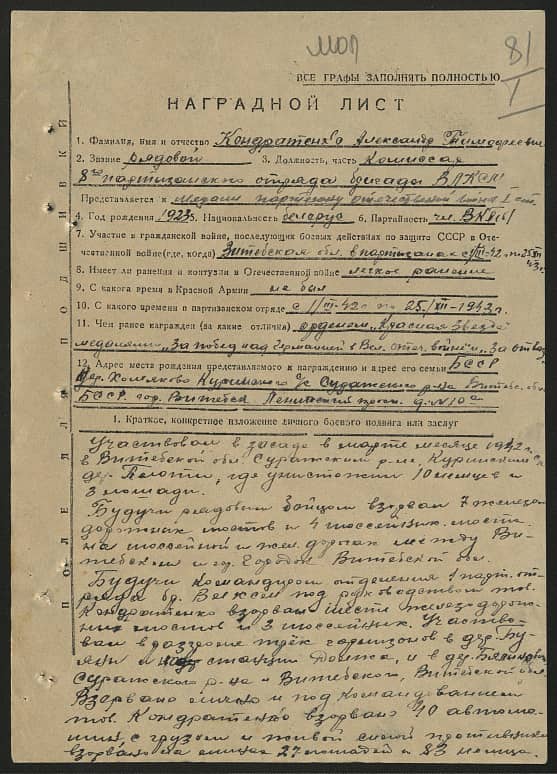 81
I
ВСЕ ГРАФЫ ЗАПОЛНЯТЬ ПОЛНОСТЬЮ
НАГРАДНОЙ ЛИСТ
ПОЛЕ ДЛЯ ПОДШИВКИ
1. Фамилия, имя и отчество Кондратенко Александр Тимофеевич
2. Звание рядовой 3. Должность, часть комиссар
партизанского отряда бригада ВЛКСМ
Представляется к медали партизану отечественной войны I ст.
4. Год рождения 1923 5. Национальность белорус 6. Партийность чл. ВКП(б)
7. Участие в гражданской войне, последующих боевых действиях по защите СССР в Оте-
чественной войне (где, когда) Витебская обл. в партизанах с III-42 г. по 25 XII 43 г.
8. Имеет ли ранения и контузии в Отечественной войне легкое ранение
9. С какого времени в Красной Армии не был
10. С какого времени в партизанском отряде с III-42 г. по 25/XII-1943 г.
11. Чем ранее награжден (за какие отличия) орденом „Красная Звезда"
медалями „За побед над Германией в Вел. отеч. войне", „За отвагу"
12. Адрес места рождения представляемого к награждению и адрес его семьи БССР
дер. Хомяково Куринского с/с Суражского р-на Витебс. обл.
БССР. гор. Витебск Ленинский д. №10а
1. Краткое, конкретное изложение личного боевого подвига или заслуг
Участвовал в засаде в марте месяце 1942 г.
в Витебской обл. Суражским р-не, Куринским с/с
дер. где уничтожен 10 немцев и
3 лошади.
Будучи рядовым бойцом взорвал 7 железно
дорожных мостов и 4 шоссейных моста
на шоссейной и жел. дорогах между Ви-
тебском и г. Городок Витебской обл.
Будучи командиром отделения 1 парт. от-
ряда бр. под руководством тов.
Кондратенко взорвал шести железнодорож-
ных мостов и 3 шоссейных. Участво-
вал в разгроме трёх гарнизонов в дер. Бу-
яны и станции и в дер.
Суражского р-на и Витебского, Витебской обл.
Взорвано лично и под командованием
тов. Кондратенко взорвано 10 автома-
шин с грузом и живой силой противника
взорвано на минах 27 лошадей и 83 немца.